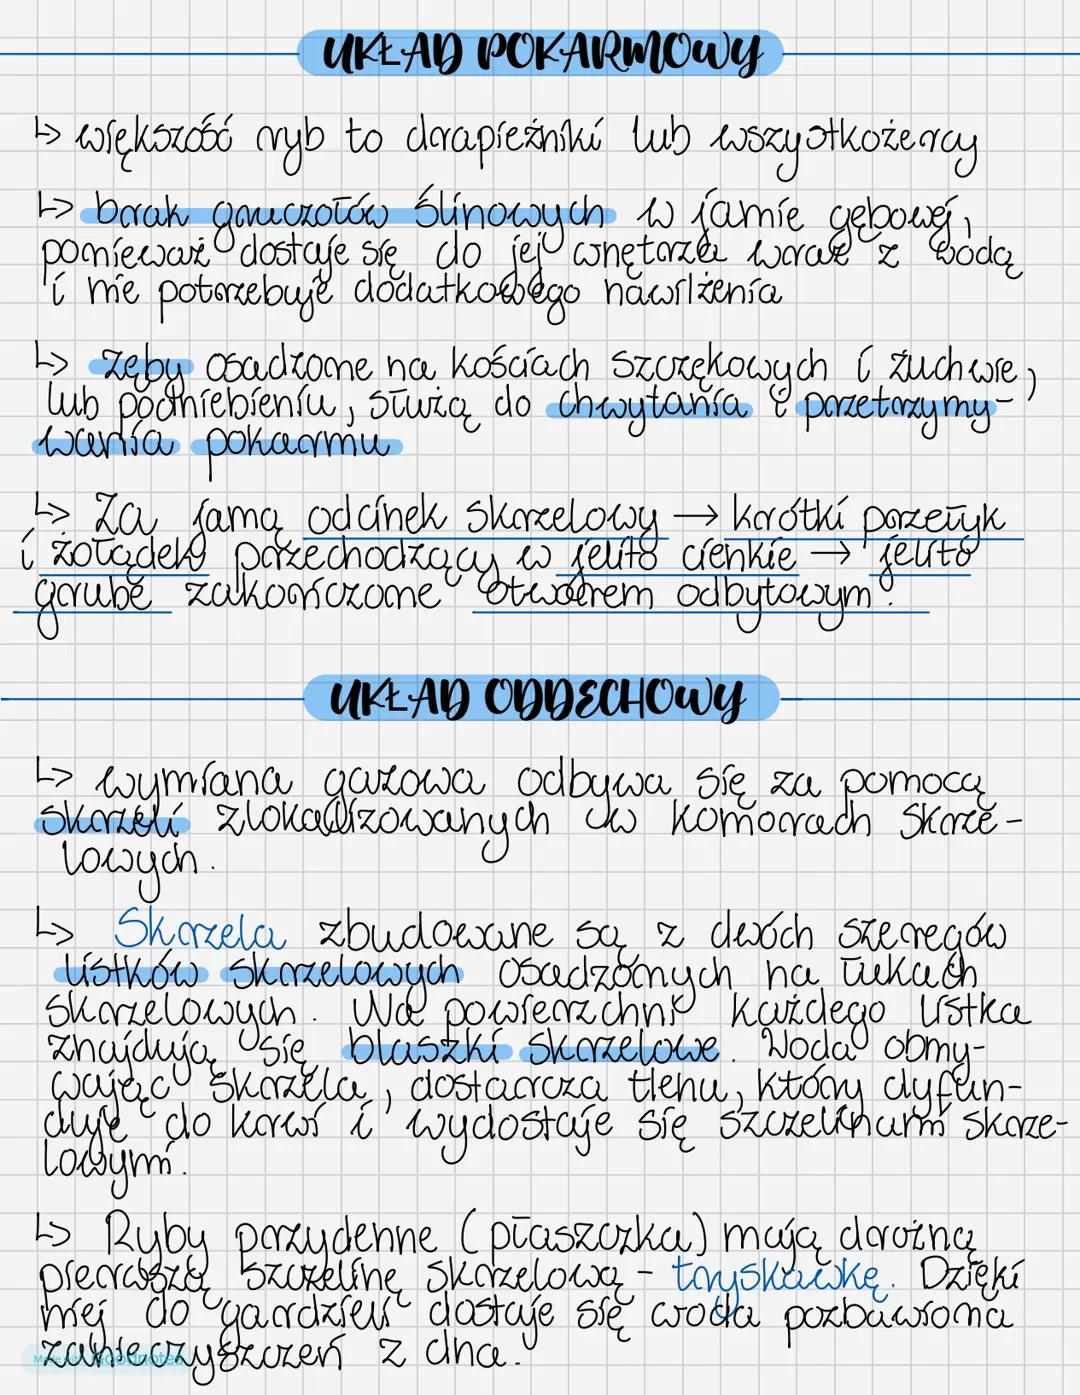 UKŁAD POKARMOWY
↳ większość ryb to drapieżniki lub wszystkożercy
↳ brak gruczołów ślinowych w jamie gębowej,
ponieważ dostaje się do jej wnętrza wraz z wodą
i nie potrzebuje dodatkowego nawilżenia
↳ zęby osadzone na kościach szczękowych i żuchwie,
lub podniebieniu, służą do chwytania i przetrzymy-
wania pokarmu
↳ Za jamą odcinek skrzelowy → krótki przełyk
i żołądek przechodzący w jelito cienkie → jelito
grube zakończone otworem odbytowym.
UKŁAD ODDECHOWY
↳ wymiana gazowa odbywa się za pomocą
skrzeli zlokalizowanych w komorach skrze-
lowych.
↳ Skrzela zbudowane są z dwóch szeregów
listków skrzelowych osadzonych na łukach
skrzelowych. Na powierzchni każdego listka
znajdują się blaszki skrzelowe. Woda obmy-
wając skrzela, dostarcza tlenu, który dyfun-
duje do krwi i wydostaje się szczelinami skrze-
lowymi.
↳ Ryby przydenne (płaszczka) mają drożną
pierwszą szczelinę skrzelową - tryskawkę. Dzięki
niej do gardzieli dostaje się woda pozbawiona
zanieczyszczeń z dna.
Made with Goodnotes